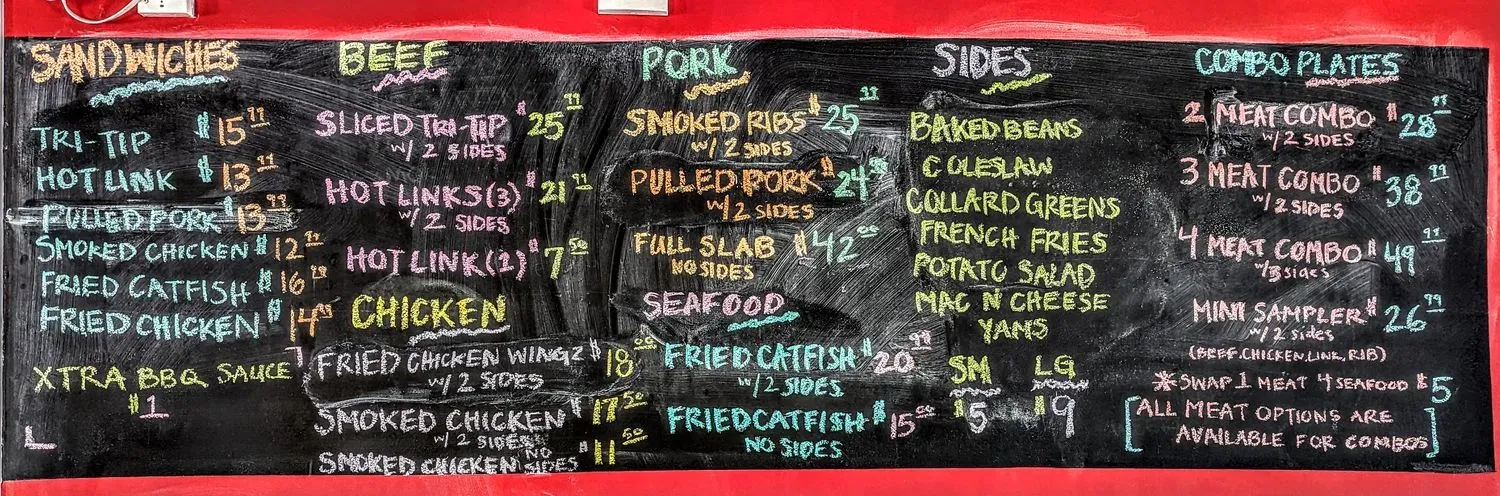 SANDWICHES
TRI-TIP $15.99
HOT LINK $13.99
PULLED PORK $13.99
SMOKED CHICKEN $12.99
FRIED CATFISH $16.29
FRIED CHICKEN $14.99
XTRA BBQ SAUCE
$1
BEEF
SLICED TRI-TIP $25.99
w/ 2 SIDES
HOT LINKS(3) $21.99
w/ 2 SIDES
HOT LINK(1) $7.50
CHICKEN
FRIED CHICKEN WINGZ $18.00
w/ 2 SIDES
SMOKED CHICKEN $17.50
w/ 2 SIDES
SMOKED CHICKEN NO SIDES $11.50
PORK
SMOKED RIBS $25.99
w/ 2 SIDES
PULLED PORK $24
w/2 SIDES
FULL SLAB $42.00
NO SIDES
SEAFOOD
FRIED CATFISH $20.99
w/2 SIDES
FRIED CATFISH $15.00
NO SIDES
SIDES
BAKED BEANS
COLESLAW
COLLARD GREENS
FRENCH FRIES
POTATO SALAD
MAC N CHEESE
YAMS
SM LG
$5 $9
COMBO PLATES
2 MEAT COMBO $28.99
w/ 2 SIDES
3 MEAT COMBO $38.99
w/ 2 SIDES
4 MEAT COMBO $49.99
w/3 sides
MINI SAMPLER $26.99
w/ 2 sides
(BEEF, CHICKEN, LINK, RIB)
*SWAP 1 MEAT 4 SEAFOOD $5
[ALL MEAT OPTIONS ARE
AVAILABLE FOR COMBOS]